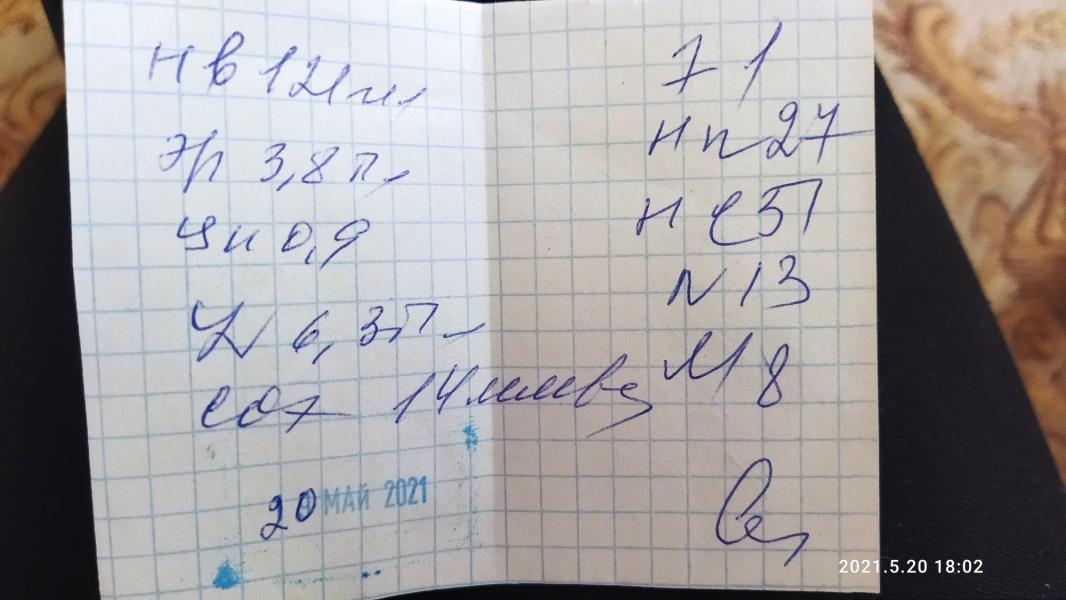 Нв 121 г/л
Эр 3,8 т/л
Цп 0,9
L 6,3 г/л
СОЭ 14 мм в
20 МАЙ 2021
Э 1
Нп 27
Нс 51
л 13
М 8
2021.5.20 18:02